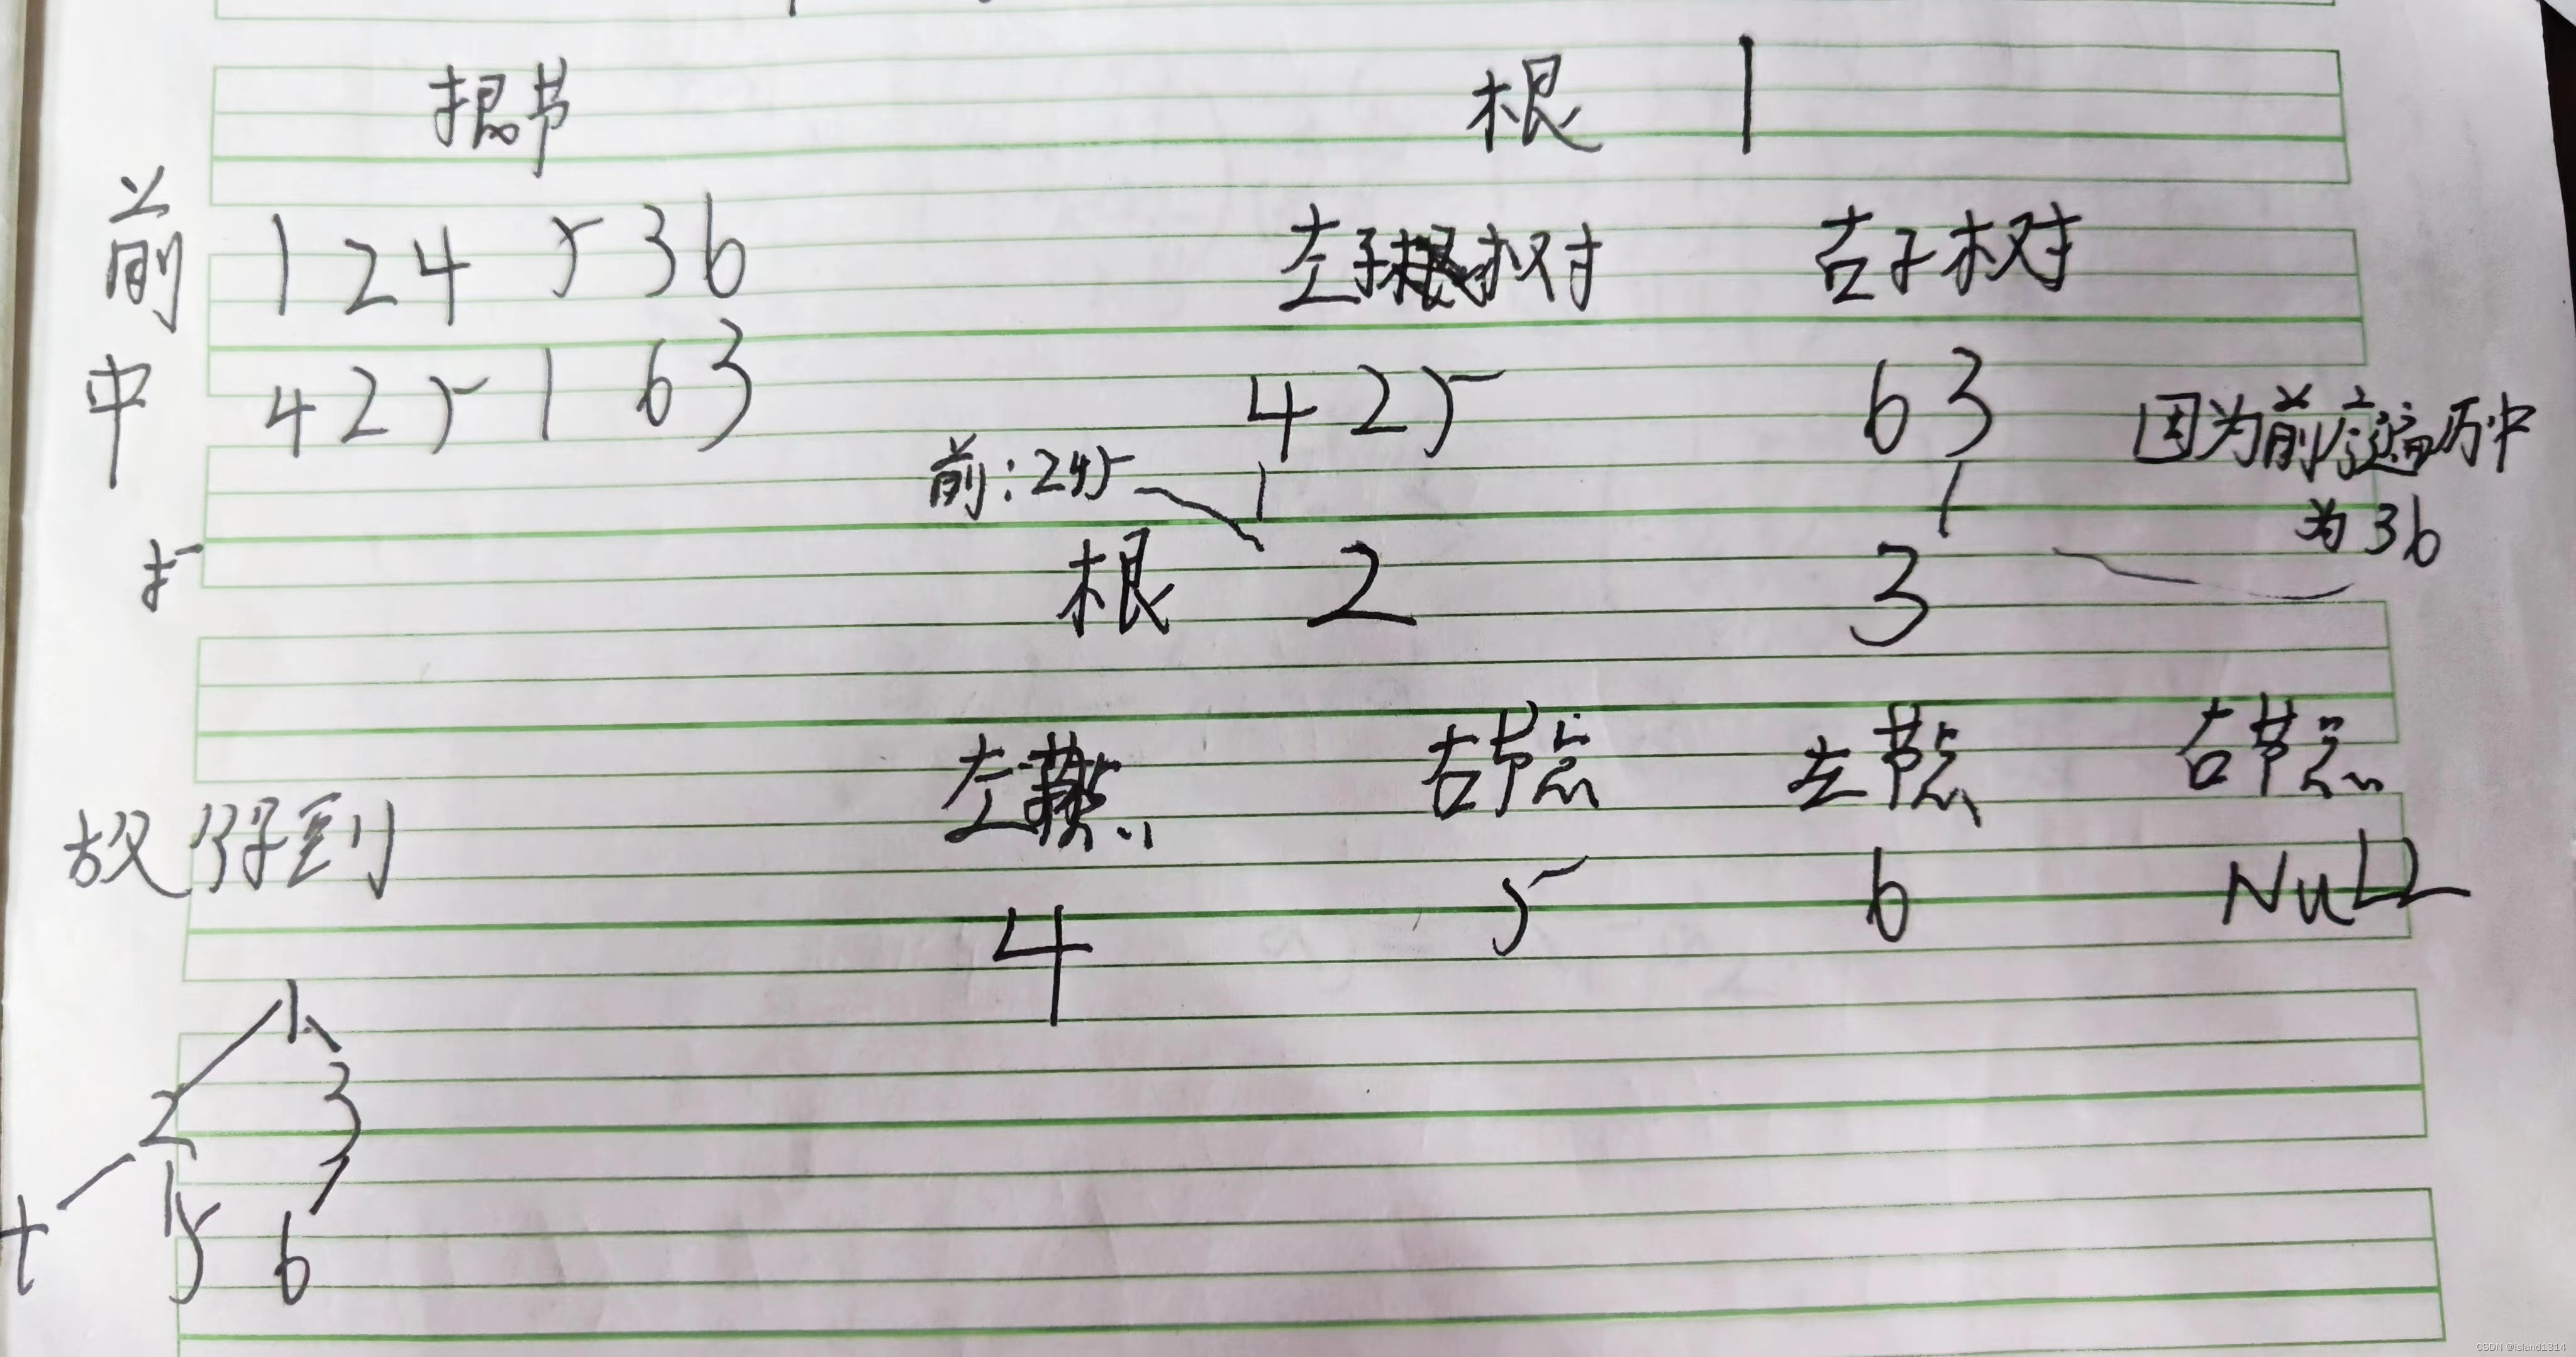 根节
根 1
前 1 2 4 5 3 6
左子树 右子树
中 4 2 5 1 6 3
4 2 5 6 3
因为前序遍历中
为 3 6
前:245
根 2 3
左节点 右节点 左节点 右节点
4 5 6 NULL
故得到
1
2 3
4 5 6
CSDN @island1314